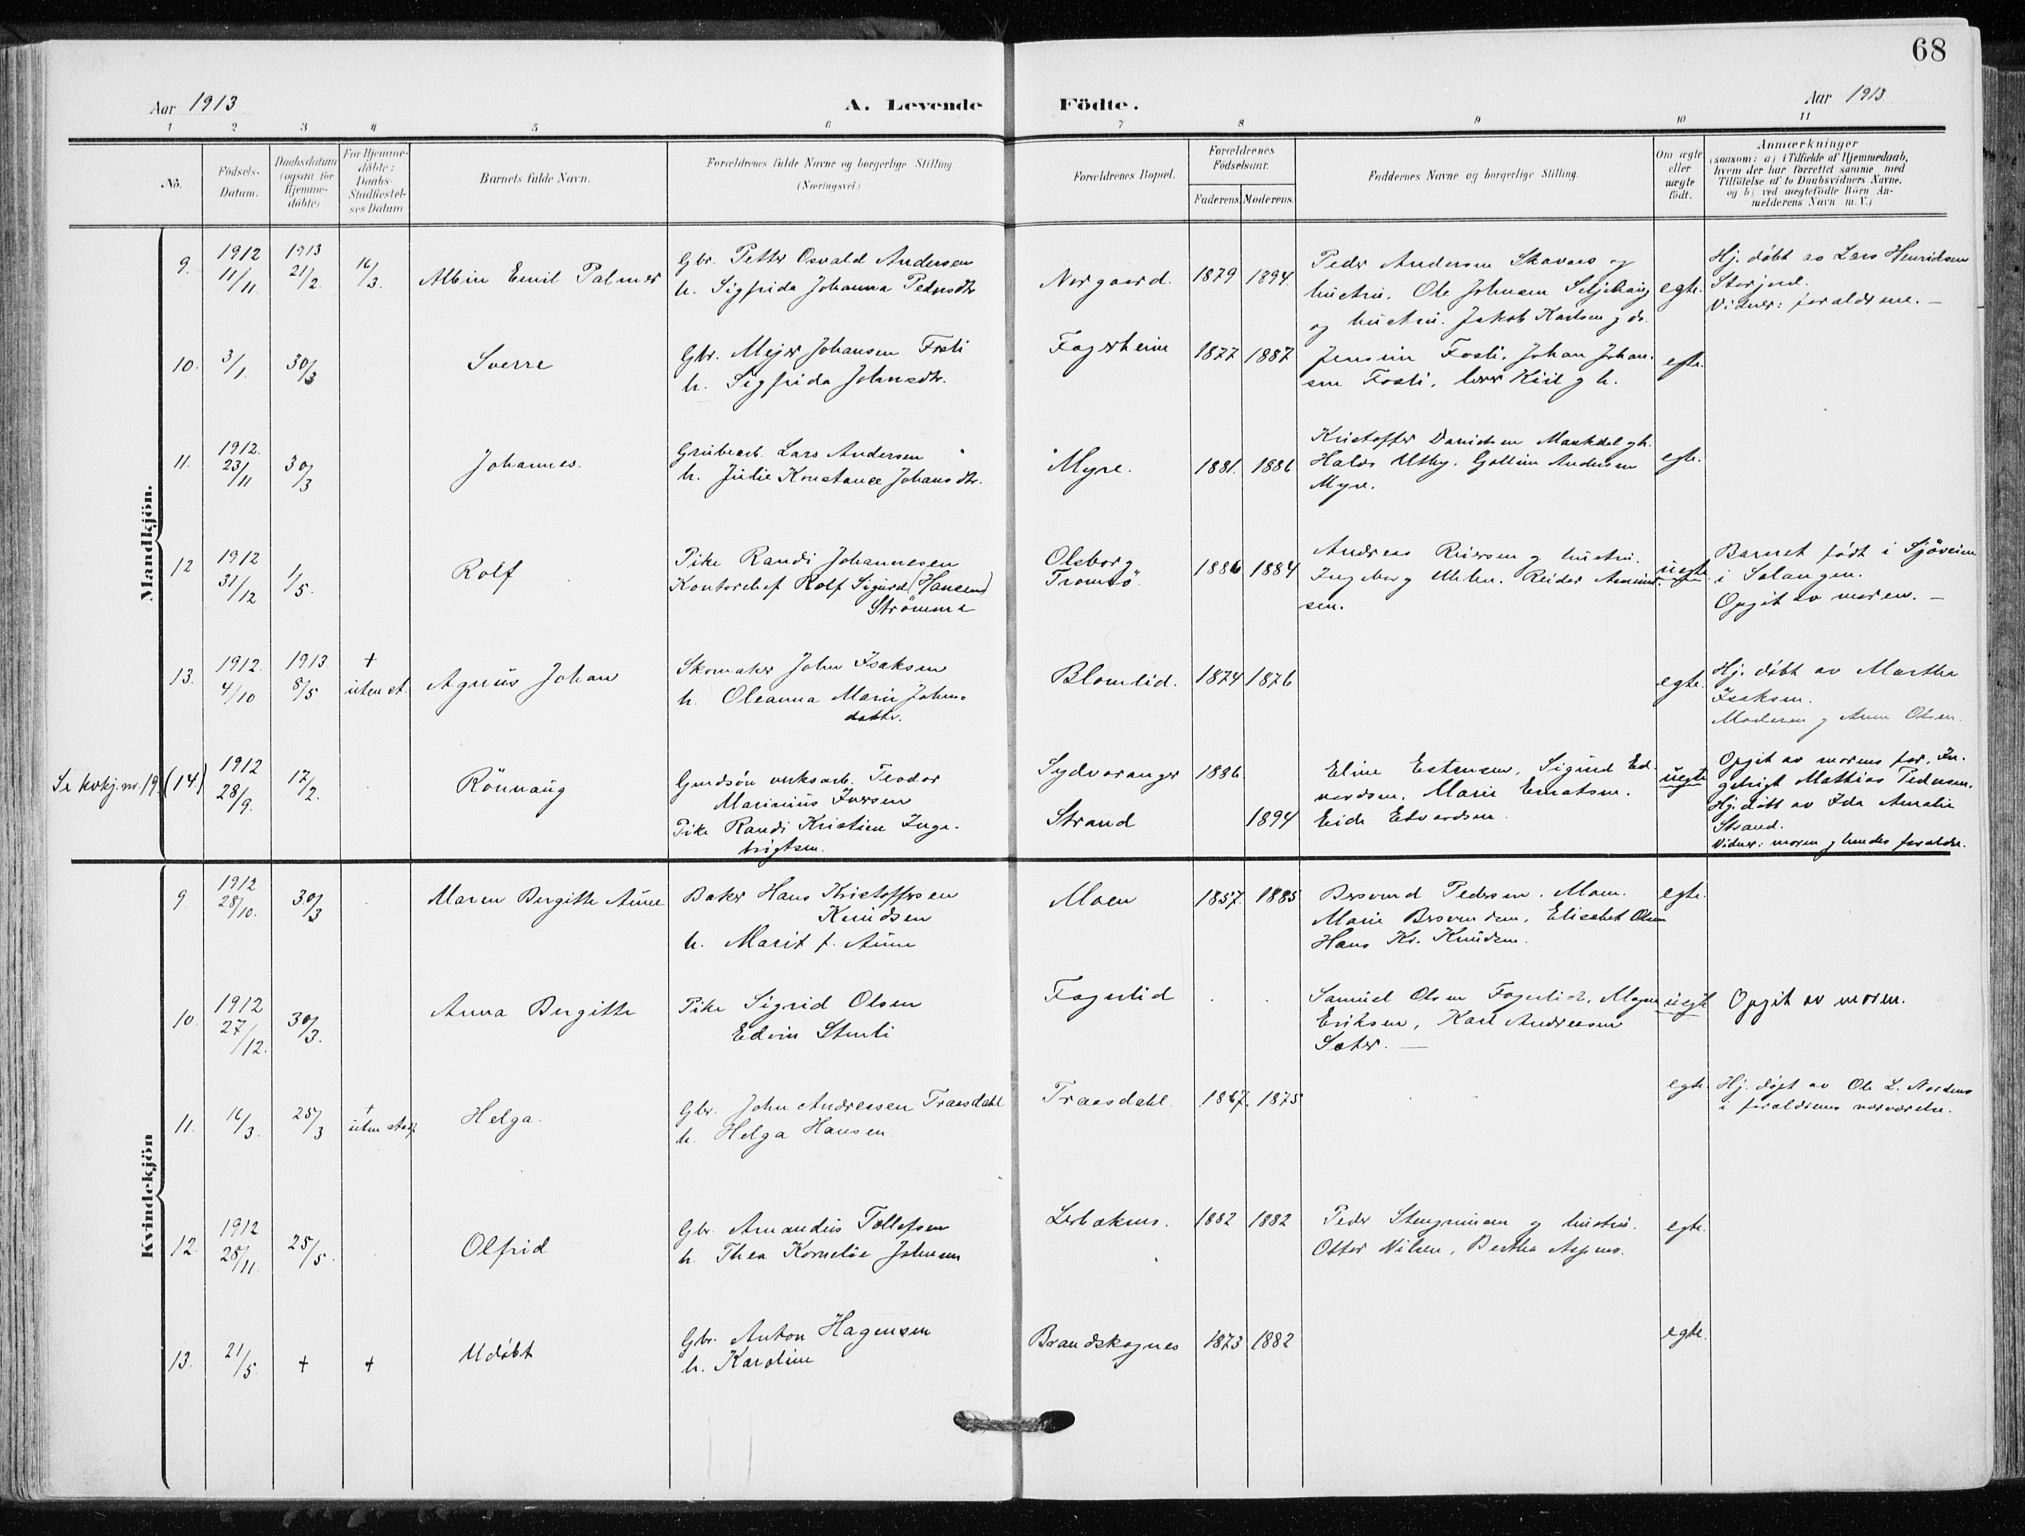 68
Aar 1913
A. Levende Födte.
Aar 1913
1 2 3 4 5 6 7 8 9 10 11
No.
Födsels-
Datum.
Daabsdatum
(ogsaa for
Hjemme-
döbte)
For Hjemme-
döbte:
Daabs-
Stadfæstel-
ses Datum
Barnets fulde Navn.
Forældrenes fulde Navne og borgerlige Stilling
(Næringsvei.)
Forældrenes Bopæl.
Forældrenes
Födselsaar.
Faderens. Moderens.
Faddernes Navne og borgerlige Stilling.
Om ægte
eller
uægte
födt.
Anmærkninger
(saasom: a) i Tilfælde af Hjemmedaab,
hvem der har forrettet samme med
Tilföielse af to Daabsvidners Navne,
og b) ved uægtefödte Börn An-
melderens Navn m. V.)
Mandkjön.
9. 1912 11/11. 1913 21/2. 16/3. Albin Emil Palmer
Gbr. Petter Osvald Andersen
h. Sigfrida Johanna Pedersdtr
Norgaard. 1879 1894.
Peder Andersen Skavaas og
hustru. Ole Johnsen Seljehaug
og hustru. Jakob Karlsen g ds.
egte.
Hj. døbt av Lars Henriksen
Storjord.
Vidner: forældrene. —
10. 3/1. 30/3 Sverre
Gbr. Mejer Johansen Fosli
h. Sigfrida Johnsdtr.
Fagerheim 1877 1887
Jensine Fosli, Johan Johan-
sen Fosli, Kiil g h.
egte.
11. 1912. 23/11 30/3 Johannes.
Grubearb. Lars Andersen
h. Julie Konstance Johansdtr.
Myre. 1881. 1886
Kristoffer Danielsen Maukdal g h.
Haldo Utby. Gottline Andersen
Myre.
egte.
12 1912 31/12 1/5. Rolf
Pike Randi Johannesen
Kontorchef Rolf Sigurd (Hansen)
Strømme
Olsborg
Tromsö 1886 1884
Andreas Riersen og hustru.
Ingeborg Uhlen. Reidar Amund-
sen.
uegte
Barnet født i Sjøveien
i Salangen.
Opgit av moren. —
13. 1912. 4/10 1913 8/5 + uten st. Agnus Johan
Skomaker John Isaksen
h. Oleanna Marie Johns-
datter.
Blomlid. 1874 1876
egte.
Hj. døbt av Martha
Isaksen.
Moderen g Anne Olsen.
Se kvkj. nr. 19. (14.) 1912 28/9. 17/2. Rönnaug
Gaardsøn verksarb. Teodor
Marinius Iversen
Pike Randi Kristien Inge-
brigtsen.
Sydvaranger 1886.
Strand 1894
Eline Estensen, Sigurd Ed-
vardsen, Marie Ernstsen.
Eide Edvardsen.
uegte
Opgit av morens far, In-
gebrigt Mathias Pedersen.
Hj. døbt av Ida Amalie
Strand.
Vidner: moren g hendes forældre.
Kvindekjön
9. 1912 28/10. 30/3 Maren Birgitte Aune
Baker Hans Kristoffersen
Knudsen
h. Marit f. Aune
Moen 1857. 1885
Besvend Pedersen. Moen.
Marie Besvendsen, Elisabet Olsen
Hans Kr. Knudsen.
egte.
10. 1912 27/12. 30/3. Anna Birgitte
Pike Sigrid Olsen
Edvin Stenli
Fagerlid
Samuel Olsen Fagerlid, Magna
Eriksen, Karl Andreasen
Sæter. —
uegte
Opgit av moren.
11. 16/3. 25/3 + uten stadf. Helga.
Gbr. John Andressen Traasdahl
h. Helga Hansen.
Traasdahl. 1867. 1875
egte.
Hj. døpt av Ole L. Nordmo
i forældrenes nærværelse.
12. 1912 25/11. 25/5. Olfrid
Gbr. Amandus Tollefsen
h. Thea Kornelie Johnsen
Leirbakmo. 1882 1882
Peder Stengrimsen og hustru.
Otter Nilsen, Bertha Aspmo.
egte.
13. 21/5. + + Udöbt
Gbr. Anton Hagensen
h. Karoline
Brandskognes 1873 1882
egte.